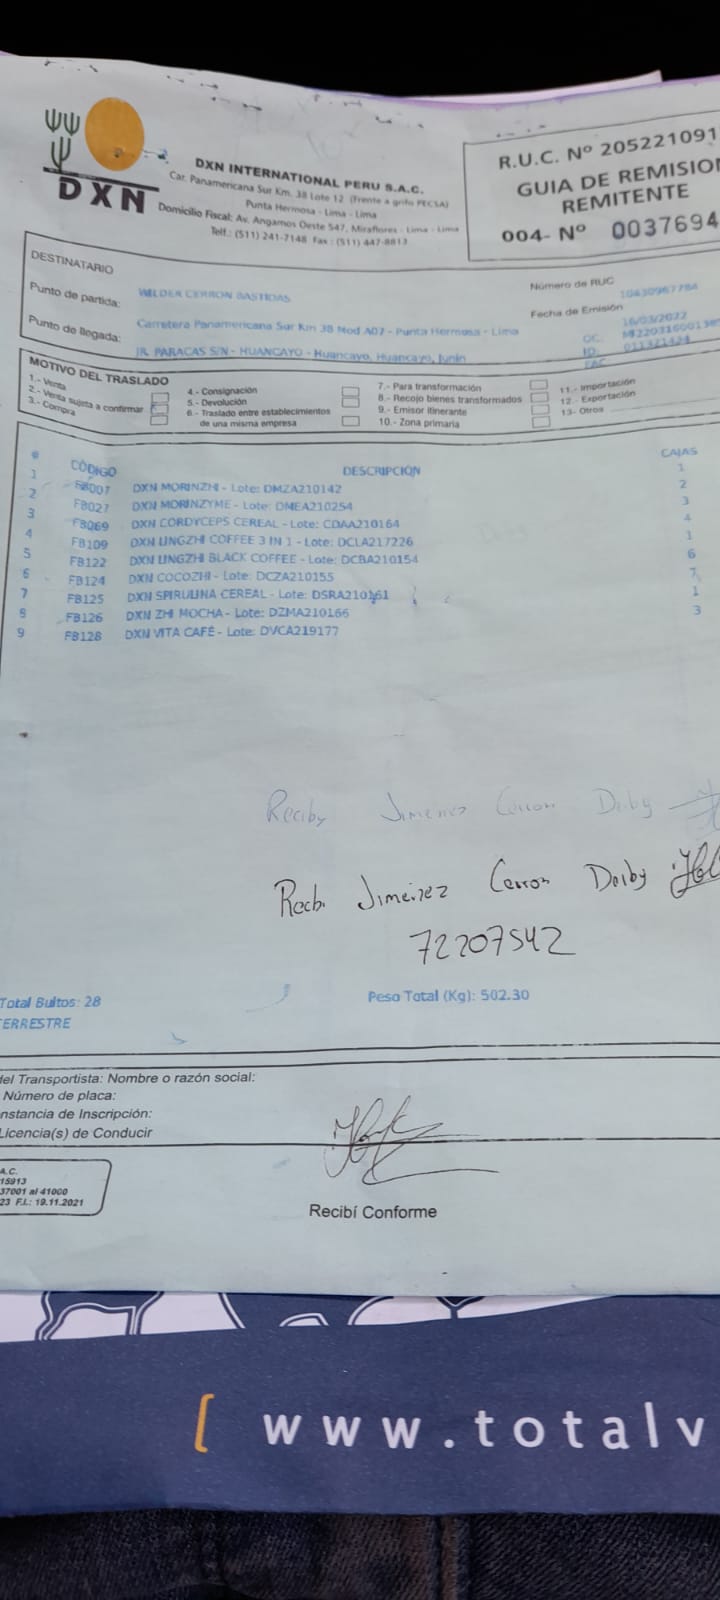 DXN
DXN INTERNATIONAL PERU S.A.C.
Car. Panamericana Sur Km. 38 Lote 12 (Frente a grifo PECSA)
Punta Hermosa - Lima - Lima
Domicilio Fiscal: Av. Angamos Oeste 547, Miraflores - Lima - Lima
Telf.: (511) 241-7148 Fax : (511) 447-8813
R.U.C. Nº 205221091
GUIA DE REMISION
REMITENTE
004- Nº 0037694
DESTINATARIO
WILDER CERRON BASTIDAS
Número de RUC
10430967784
Punto de partida:
Carretera Panamericana Sur Km 38 Mod A07 - Punta Hermosa - Lima
Fecha de Emisión
16/03/2022
Punto de llegada:
JR. PARACAS S/N - HUANCAYO - Huancayo, Huancayo, Junin
OC:
ID: 011321424
FAC
MOTIVO DEL TRASLADO
1.- Venta
2.- Venta sujeta a confirmar
3.- Compra
4.- Consignación
5.- Devolución
6.- Traslado entre establecimientos
de una misma empresa
7.- Para transformación
8.- Recojo bienes transformados
9.- Emisor itinerante
10.- Zona primaria
11.- Importación
12.- Exportación
13- Otros
# CÓDIGO DESCRIPCIÓN CAJAS
1 FB007 DXN MORINZHI - Lote: DMZA210142 1
2 FB027 DXN MORINZYME - Lote: DMEA210254 2
3 FB069 DXN CORDYCEPS CEREAL - Lote: CDAA210164 3
4 FB109 DXN LINGZHI COFFEE 3 IN 1 - Lote: DCLA217226 4
5 FB122 DXN LINGZHI BLACK COFFEE - Lote: DCBA210154 1
6 FB124 DXN COCOZHI - Lote: DCZA210155 6
7 FB125 DXN SPIRULINA CEREAL - Lote: DSRA210161 7
8 FB126 DXN ZHI MOCHA - Lote: DZMA210166 1
9 FB128 DXN VITA CAFÉ - Lote: DVCA219177 3
Reciby Jimenez Cerron Deiby
Recb. Jimenez Cerron Deiby
72207542
Total Bultos: 28
Peso Total (Kg): 502.30
TERRESTRE
del Transportista: Nombre o razón social:
Número de placa:
nstancia de Inscripción:
Licencia(s) de Conducir
A.C.
15913
37001 al 41000
23 F.I.: 19.11.2021
Recibí Conforme
[ www.totalv